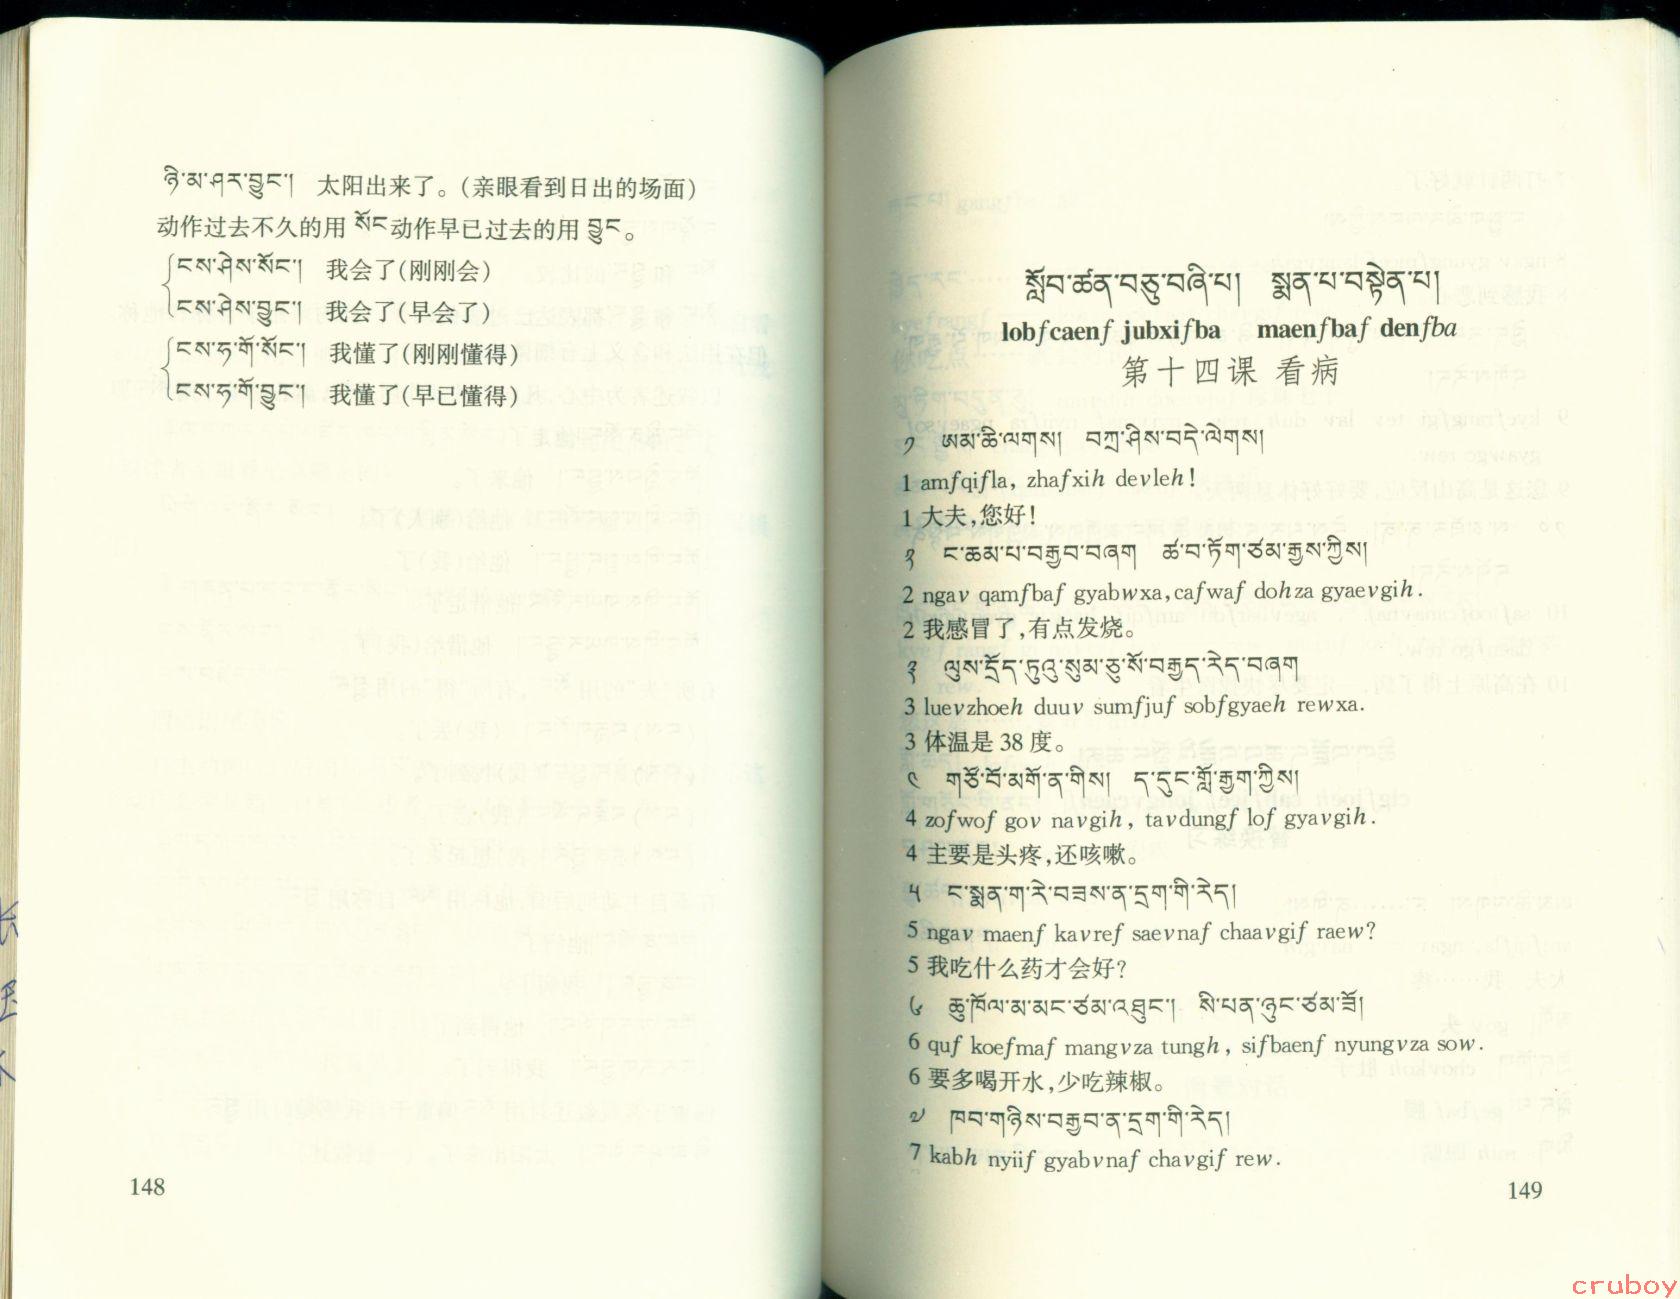 ཉི་མ་ཤར་བྱུང་། 太阳出来了。(亲眼看到日出的场面)
动作过去不久的用 སོང 动作早已过去的用 བྱུང。
ངས་ཤེས་སོང་། 我会了(刚刚会)
ངས་ཤེས་བྱུང་། 我会了(早会了)
ངས་ཧ་གོ་སོང་། 我懂了(刚刚懂得)
ངས་ཧ་གོ་བྱུང་། 我懂了(早已懂得)
148
སློབ་ཚན་བཅུ་བཞི་པ། སྨན་པ་བསྟེན་པ།
lobfcaenf jubxifba maenfbaf denfba
第十四课 看病
༡ ཨམ་ཆི་ལགས། བཀྲ་ཤིས་བདེ་ལེགས།
1 amfqifla, zhafxih devleh!
1 大夫,您好!
༢ ང་ཆམ་པ་བརྒྱབ་བཞག ཚ་བ་ཏོག་ཙམ་རྒྱས་ཀྱིས།
2 ngav qamfbaf gyabwxa,cafwaf dohza gyaevgih.
2 我感冒了,有点发烧。
༣ ལུས་དྲོད་ཏུའུ་སུམ་ཅུ་སོ་བརྒྱད་རེད་བཞག
3 luevzhoeh duuv sumfjuf sobfgyaeh rewxa.
3 体温是 38 度。
༤ གཙོ་བོ་མགོ་ན་གིས། ད་དུང་གློ་རྒྱག་ཀྱིས།
4 zofwof gov navgih, tavdungf lof gyavgih.
4 主要是头疼,还咳嗽。
༥ ང་སྨན་ག་རེ་བཟས་ན་དྲག་གི་རེད།
5 ngav maenf kavref saevnaf chaavgif raew?
5 我吃什么药才会好?
༦ ཆུ་ཁོལ་མ་མང་ཙམ་འཐུང་། སི་པན་ཉུང་ཙམ་ཟོ།
6 quf koefmaf mangvza tungh, sifbaenf nyungvza sow.
6 要多喝开水,少吃辣椒。
༧ ཁབ་གཉིས་བརྒྱབ་ན་དྲག་གི་རེད།
7 kabh nyiif gyabvnaf chavgif rew.
149
cruboy